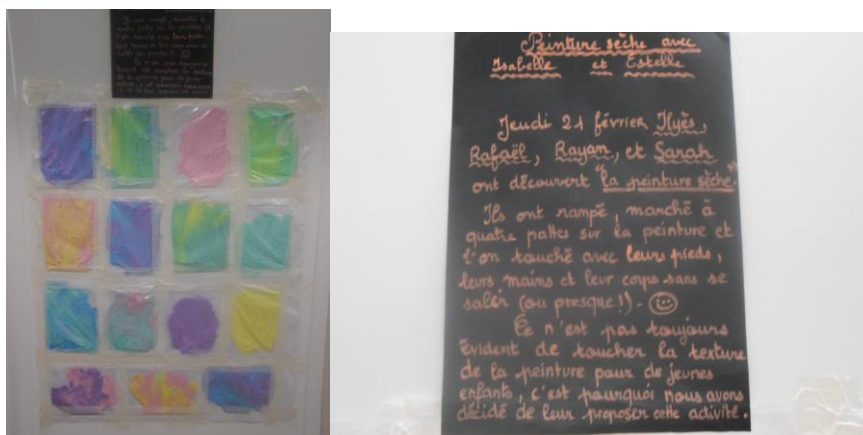 Peinture sèche avec
Isabelle et Estelle
Jeudi 21 février Ilyès,
Rafaël, Rayan, et Sarah
ont découvert "la peinture sèche".
Ils ont rampé, marché à
quatre pattes sur la peinture et
l'on touché avec leurs pieds,
leurs mains et leur corps sans se
salir (ou presque!).
Ce n'est pas toujours
évident de toucher la texture
de la peinture pour de jeunes
enfants, c'est pourquoi nous avons
décidé de leur proposer cette activité.